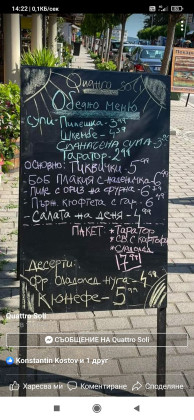 14:22 | 0,1КБ/сек
Quattro Soli
Обедно меню
Супи- Пилешка- 3,99
Шкембе- 4,39
Спаначена супа- 3,
Таратор- 2,99
Основно: Тиквички 5,99
- Боб плакия с наденичка-
- Пиле с ориз на фурна- 6
- Пърж. кюфтета с гар.- 6
- Салата на деня- 4,99
Пакет: *Таратор
*Св. с картофи
*Сладолед
17,99
Десерти:
Фр. сладолед нуга- 4,99
Кюнефе- 5,99
Quattro Soli
СЪОБЩЕНИЕ НА Quattro Soli
Konstantin Kostov и 1 друг
Харесва ми Коментиране Споделяне